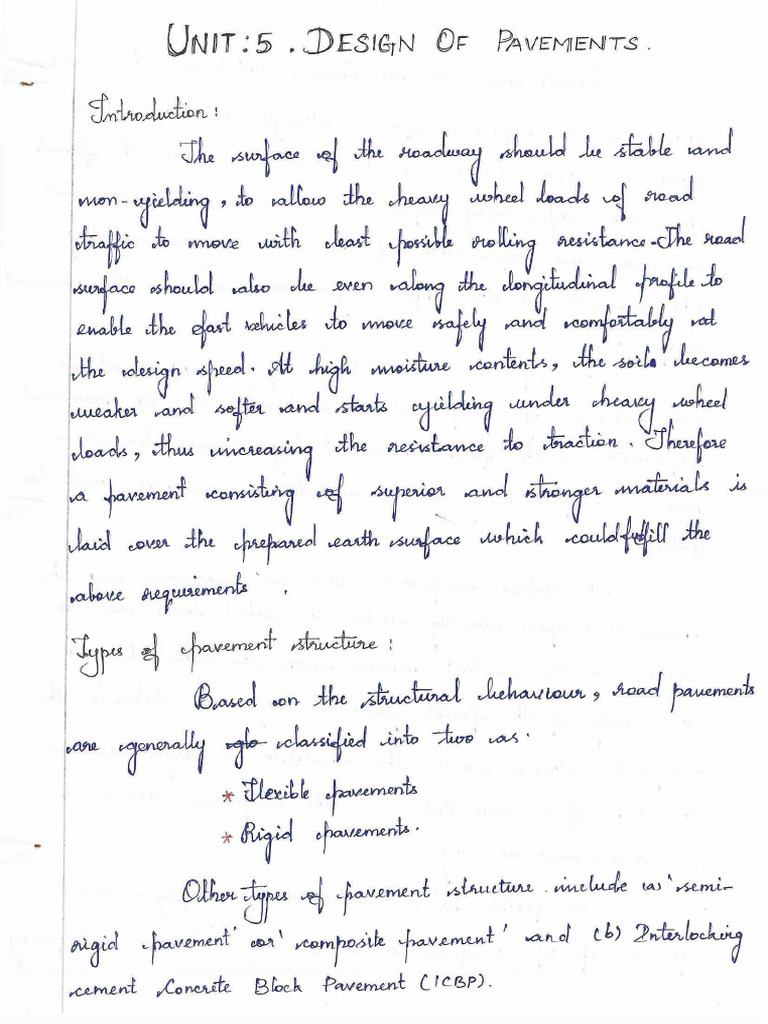 UNIT:5. DESIGN OF PAVEMENTS.
Introduction:
The surface of the roadway should be stable and
non-yielding, to allow the heavy wheel loads of road
traffic to move with least possible rolling resistance. The road
surface should also be even along the longitudinal profile to
enable the fast vehicles to move safely and comfortably at
the design speed. At high moisture contents, the soil becomes
weaker and softer and starts yielding under heavy wheel
loads, thus increasing the resistance to traction. Therefore
a pavement consisting of superior and stronger materials is
laid over the prepared earth surface which could fulfill the
above requirements.
Types of pavement structure:
Based on the structural behaviour, road pavements
are generally classified into two as.
* Flexible pavements
* Rigid pavements.
Other types of pavement structure include (a) 'semi-
rigid pavement' or 'composite pavement' and (b) Interlocking
cement Concrete Block Pavement (ICBP).